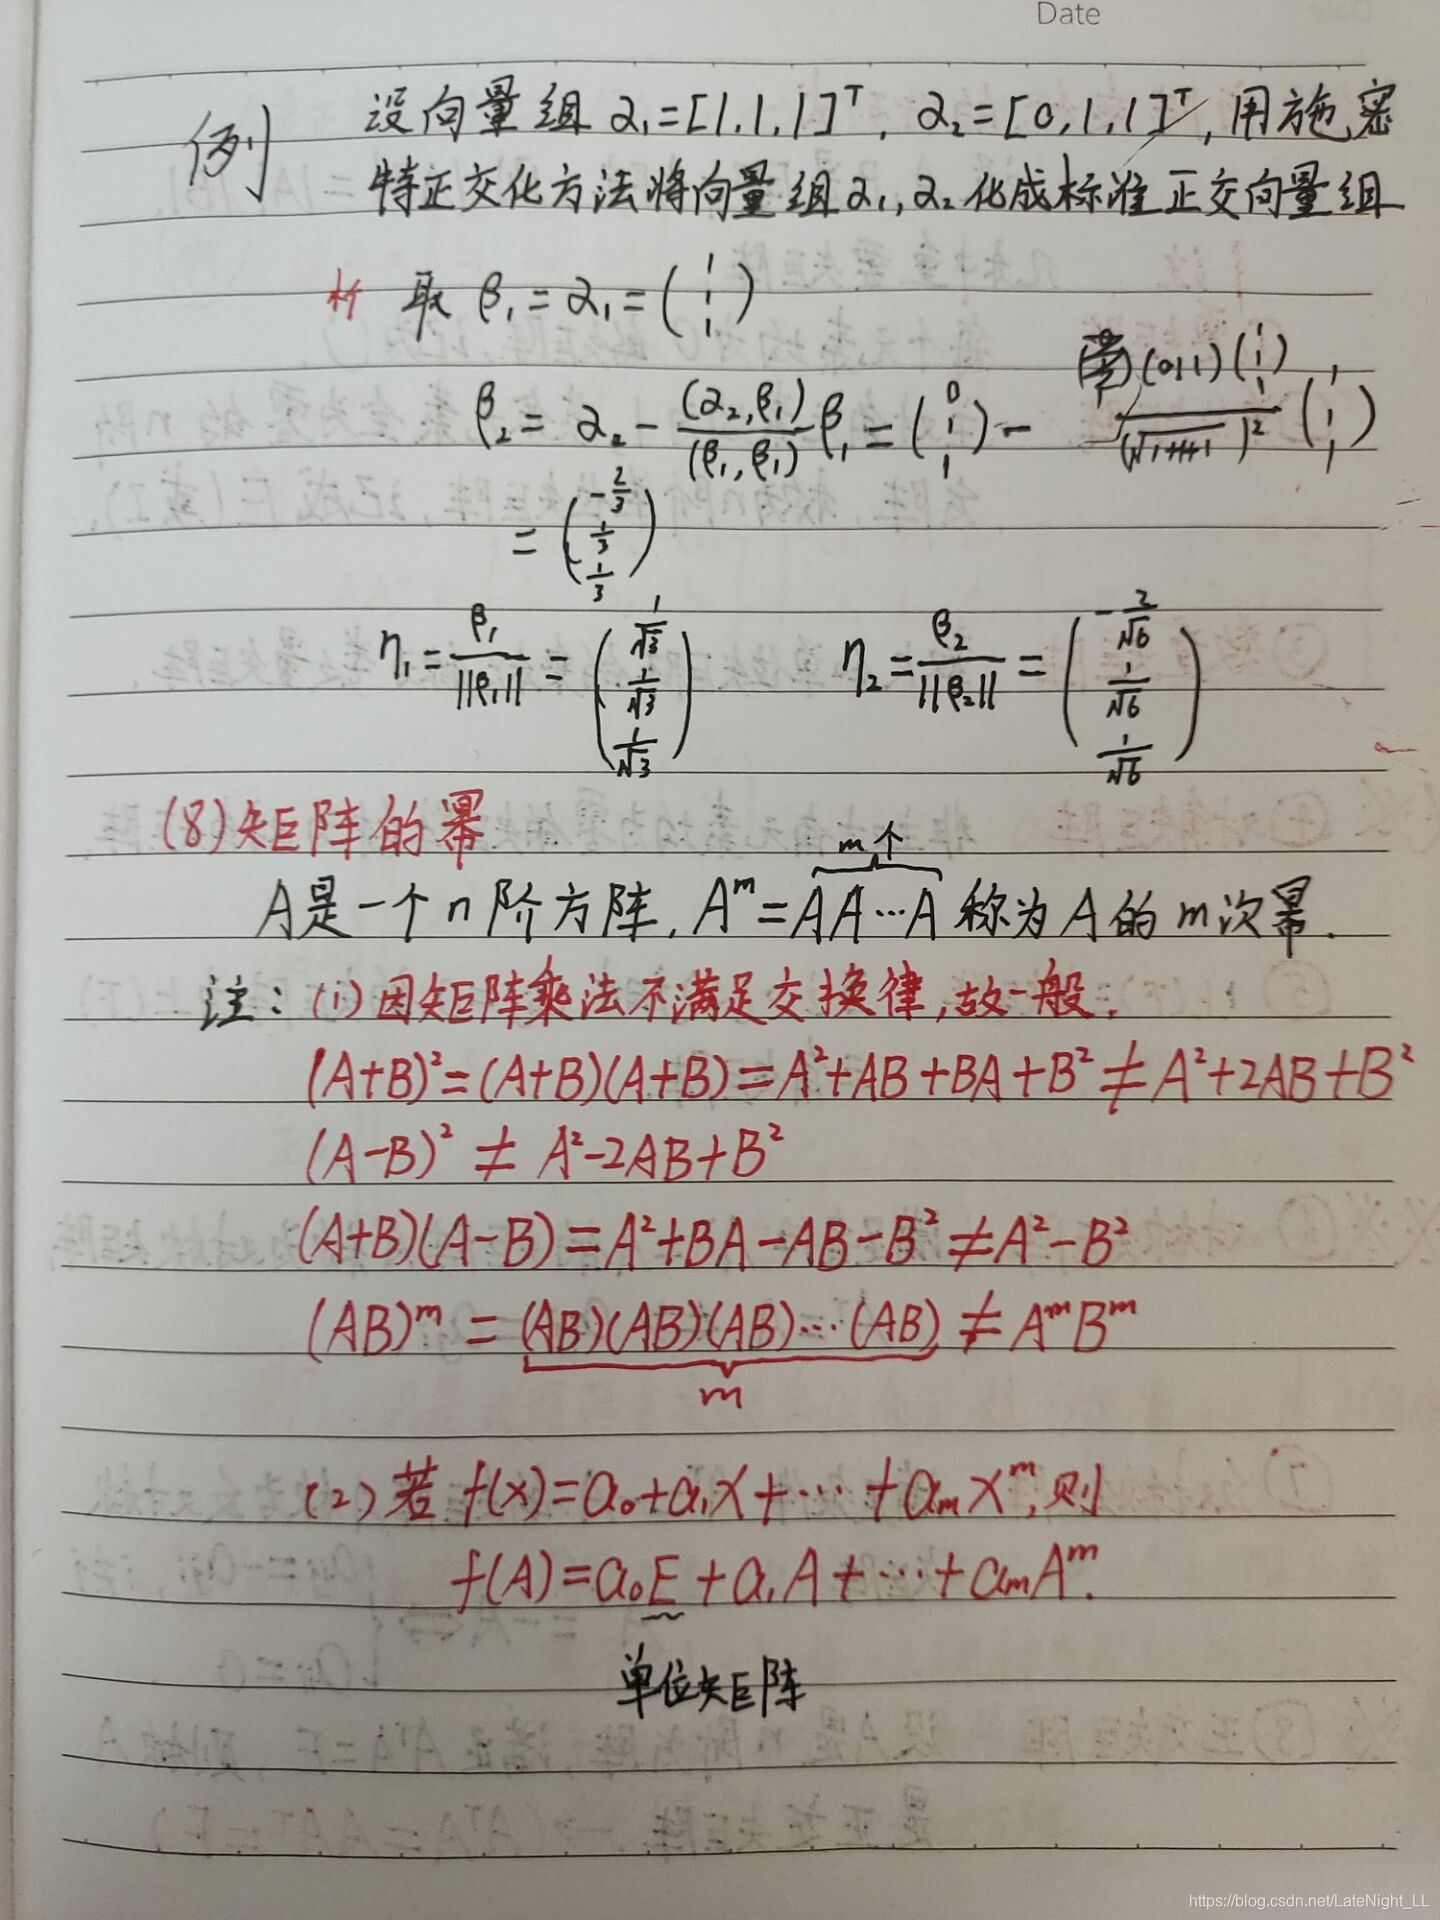 Date
例 设向量组 α₁=[1,1,1]ᵀ, α₂=[0,1,1]ᵀ,用施密
特正交化方法将向量组α₁,α₂化成标准正交向量组
析 取 β₁=α₁=(1 1 1)
β₂=α₂-(α₂,β₁)/(β₁,β₁) β₁=(0 1 1)-(0 1 1)(1 1 1)/(√1+1+1)² (1 1 1)
=(-2/3 1/3 1/3)
η₁=β₁/||β₁||=(1/√3 1/√3 1/√3) η₂=β₂/||β₂||=(-2/√6 1/√6 1/√6)
(8)矩阵的幂
m个
A是一个n阶方阵,Aᵐ=AA⋯A 称为A的m次幂.
注:(1)因矩阵乘法不满足交换律,故一般,
(A+B)²=(A+B)(A+B)=A²+AB+BA+B²≠A²+2AB+B²
(A-B)²≠A²-2AB+B²
(A+B)(A-B)=A²+BA-AB-B²≠A²-B²
(AB)ᵐ=(AB)(AB)(AB)⋯(AB)≠AᵐBᵐ
m
(2)若 f(x)=a₀+a₁x+⋯+aₘxᵐ,则
f(A)=a₀E+a₁A+⋯+aₘAᵐ.
单位矩阵
https://blog.csdn.net/LateNight_LL